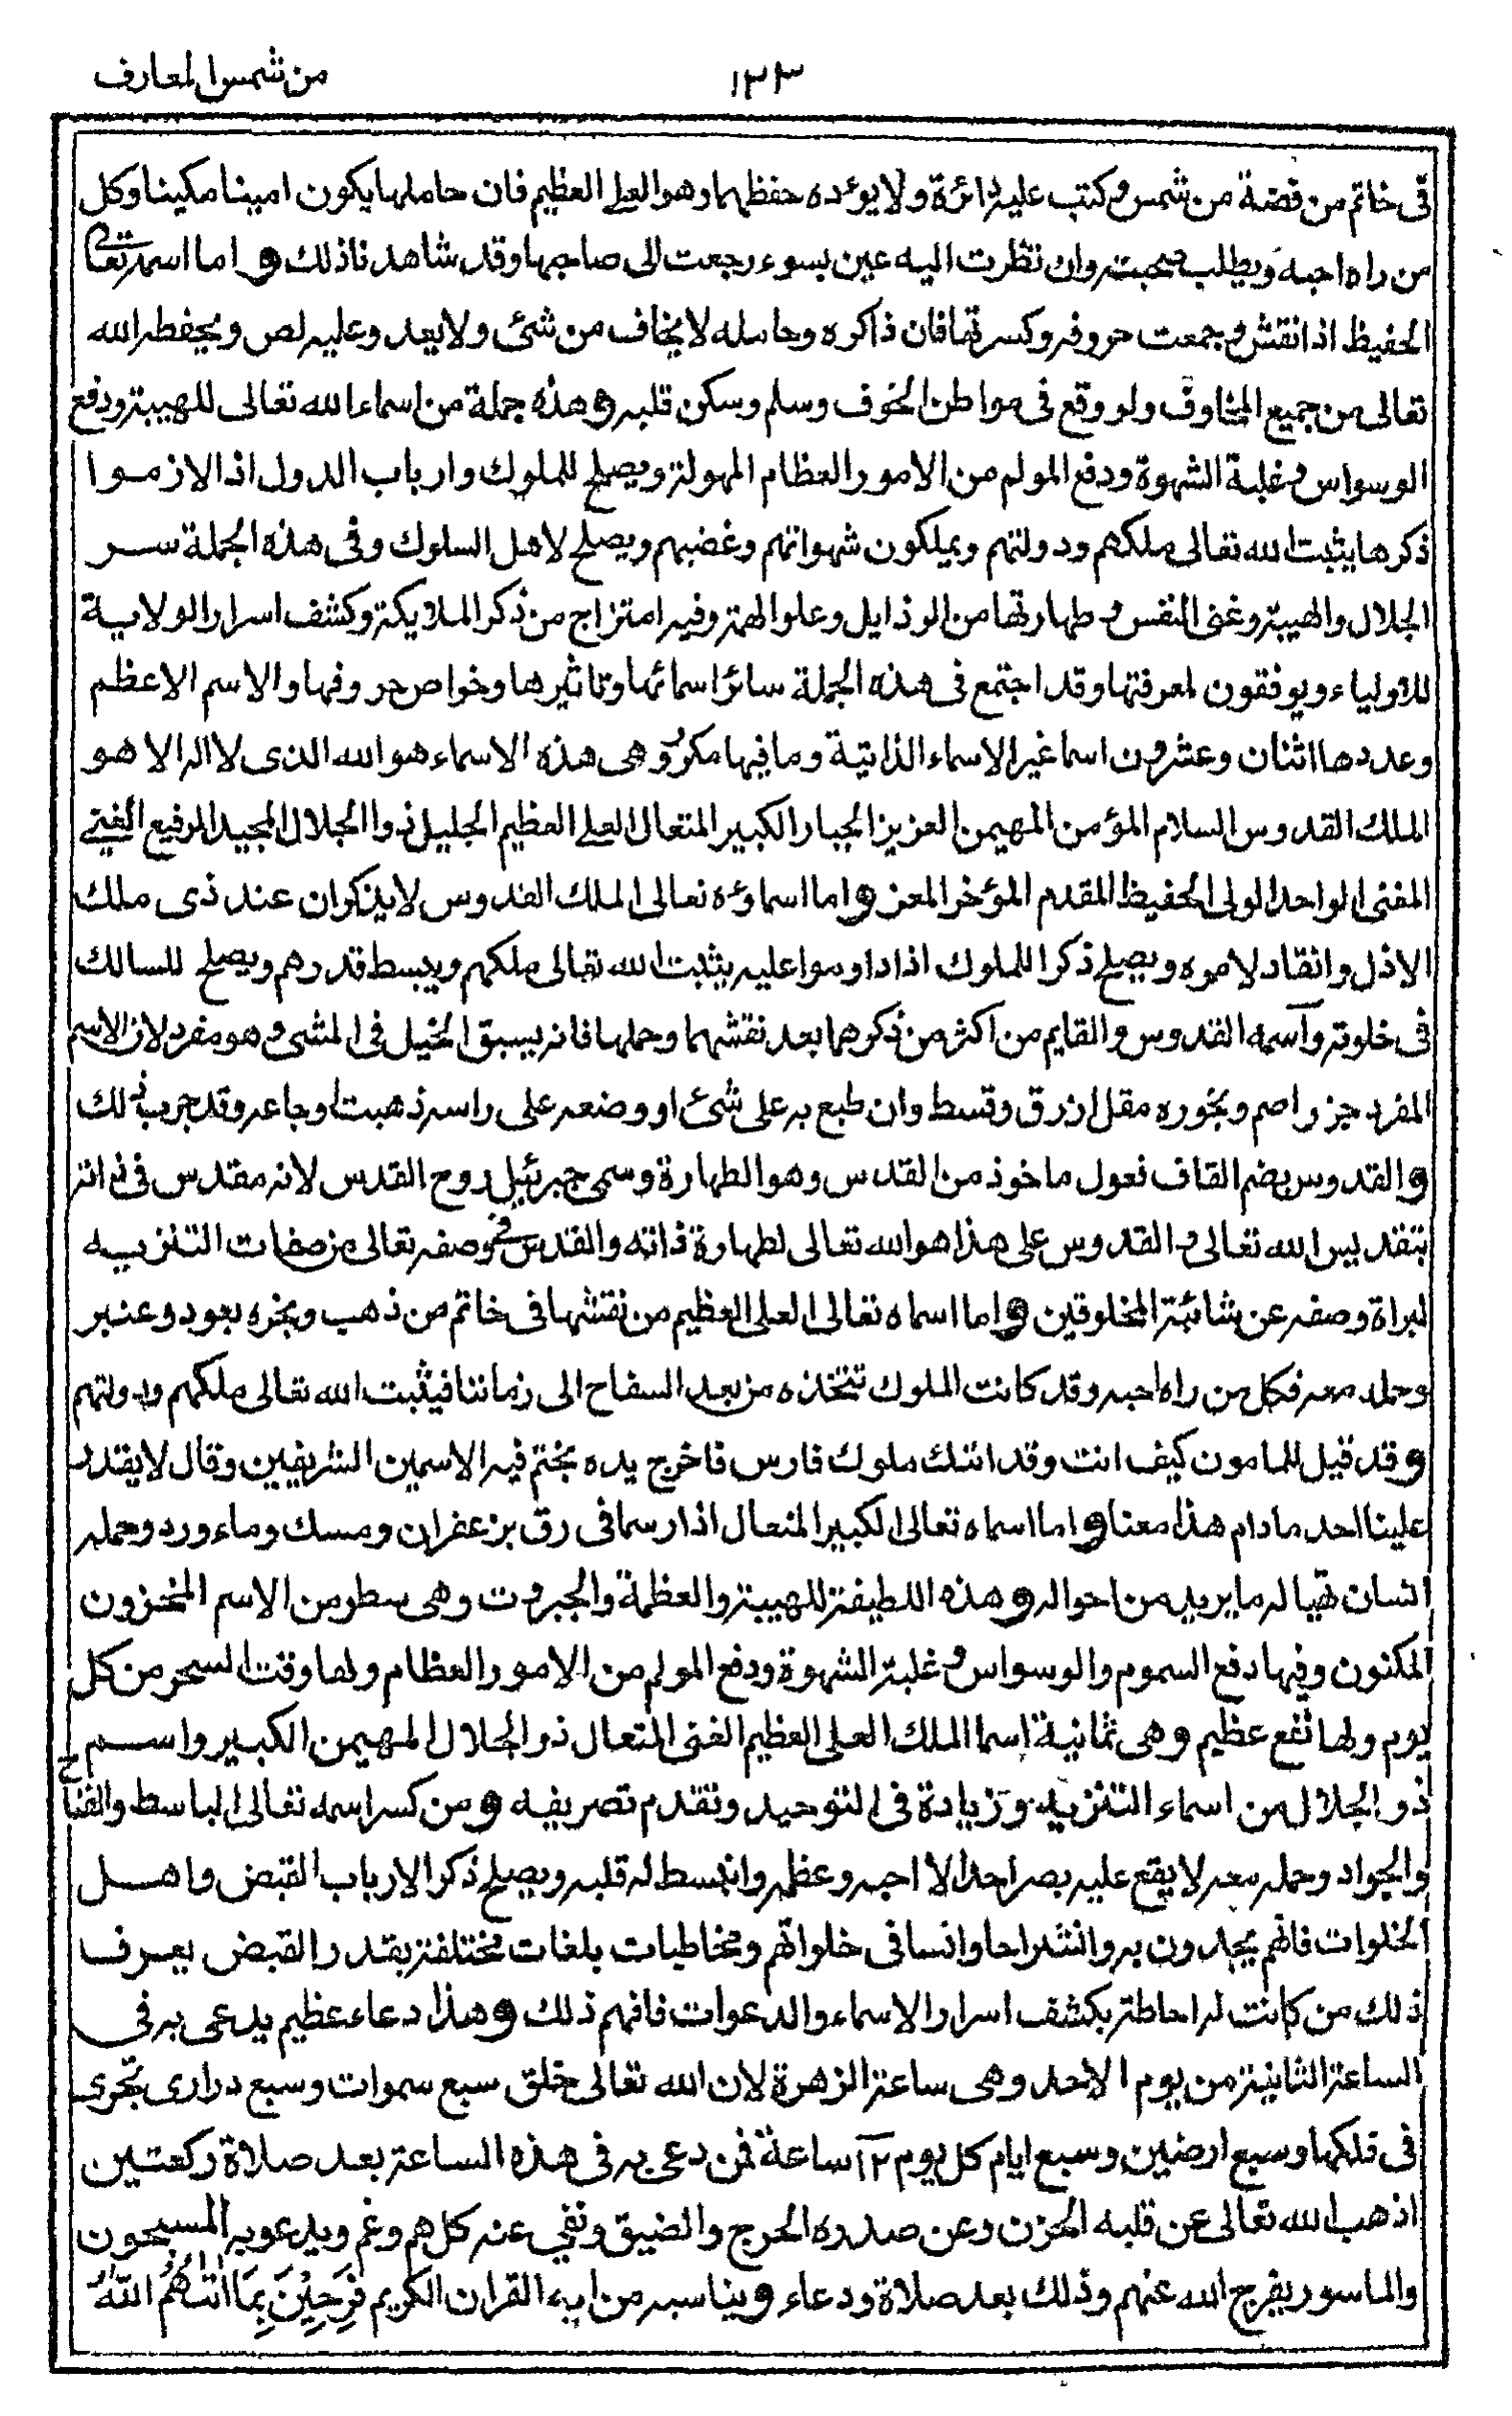 من شمس المعارف
١٣٣
فى خاتم من فضة من شمس وكتب عليه دائرة ولا يؤده حفظهما وهو العلى العظيم فان حاملها يكون امينا مكينا وكل
من راه احبه ويطلب صحبته وان نظرت اليه عين بسوء رجعت الى صاحبها وقد شاهدنا ذلك واما اسمه تعالى
الحفيظ اذا نقش وجمعت حروفه وكسرتها فان ذاكره وحامله لا يخاف من شئ ولا يعد وعليه لص ويحفظه الله
تعالى من جميع المخاوف ولو وقع فى مواطن الخوف وسلم وسكن قلبه وهذه جملة من اسماء الله تعالى للهيبة ودفع
الوسواس وغلبة الشهوة ودفع المولم من الامور العظام المهولة ويصلح للملوك وارباب الدول اذ الازموا
ذكرها يثبت الله تعالى ملكهم ودولتهم ويملكون شهواتهم وغضبهم ويصلح لاهل السلوك وفى هذه الجملة سر
الجلال والهيبة وغنى النفس وطهارتها من الرذايل وعلو الهمة وفيه امتزاج من ذكر الملايكة وكشف اسرار الولاية
للاولياء ويوفقون لمعرفتها وقد اجتمع فى هذه الجملة سائر اسمائها وتاثيرها وخواص حروفها والاسم الاعظم
وعددها اثنان وعشرون اسما غير الاسماء الذاتية وما فيها مكرر وهى هذه الاسماء هو الله الذى لا اله الا هو
الملك القدوس السلام المؤمن المهيمن العزيز الجبار الكبير المتعال العلى العظيم الجليل ذوا الجلال المجيد الرفيع الغنى
المغنى الواحد الولى الحفيظ المقدم المؤخر المعز واما اسماؤه تعالى الملك القدوس لا يذكران عند ذى ملك
الا ذل وانقاد لاموه ويصلح ذكرا للملوك اذا داوموا عليه يثبت الله تعالى ملكهم ويبسط قدرهم ويصلح للسالك
فى خلوته وآسمه القدوس والقايم من اكثر من ذكرهما بعد نقشهما وحملها فانه يسبق الخيل فى المشى وهو مفرد لان الاسم
المفرد جزر اصم وبخوره مقل ازرق وقسط وان طبع به على شئ او وضعه على راسه ذهبت اوجاعه وقد جرب ذلك
والقدوس بضم القاف فعول ماخوذ من القدس وهو الطهارة وسمى جبرئيل روح القدس لانه مقدس فى ذاته
بتقديس الله تعالى والقدوس على هذا هو الله تعالى لطهارة ذاته والقدس فى وصفه تعالى من صفات التنزيه
لبراة وصفه عن شائبة المخلوقين واما اسماه تعالى العلى العظيم من نقشها فى خاتم من ذهب وبخره بعود وعنبر
وحمله معه فكل من راه احبه وقد كانت الملوك تتخذه من بعد السفاح الى زماننا فيثبت الله تعالى ملكهم ودولتهم
وقد قيل للمامون كيف انت وقد اتتك ملوك فارس فاخرج يده بختم فيه الاسمين الشريفين وقال لا يقدر
علينا احد ما دام هذا معنا واما اسماه تعالى الكبير المتعال اذا رسما فى رق بزعفران ومسك وماء ورد وحمله
انسان تهيا له ما يريد من احواله وهذه اللطيفة للهيبة والعظمة والجبروت وهى سطر من الاسم المخزون
المكنون وفيها دفع السموم والوسواس وغلبة الشهوة ودفع المولم من الامور العظام ولها وقت السحر من كل
يوم ولها نفع عظيم وهى ثمانية اسما الملك العلى العظيم الغنى المتعال ذو الجلال المهيمن الكبير واسم
ذو الجلال من اسماء التنزيه وزيادة فى التوحيد وتقدم تصريفه ومن كسر اسمه تعالى الباسط والفتاح
والجواد وحمله معه لا يقع عليه بصر احد الا احبه وعظمه وانبسط له قلبه ويصلح ذكرا لارباب القبض واهل
الخلوات فانهم يجدون به وانشراحا وانسا فى خلواتهم ومخاطبات بلغات مختلفة بقدر القبض يعرف
ذلك من كانت له احاطة بكشف اسرار الاسماء والدعوات فافهم ذلك وهذا دعاء عظيم يدعى به فى
الساعة الثانية من يوم الاحد وهى ساعة الزهرة لان الله تعالى خلق سبع سموات وسبع درارى تجرى
فى فلكها وسبع ارضين وسبع ايام كل يوم ١٢ ساعة فمن دعى به فى هذه الساعة بعد صلاة ركعتين
اذهب الله تعالى عن قلبه الحزن وعن صدره الحرج والضيق ونفى عنه كل هم وغم ويدعو به المسجون
والماسور يفرج الله عنهم وذلك بعد صلاة ودعاء ويناسبه من ايه القران الكريم فَرِحِيْنَ بِمَا اٰتٰىهُمُ اللّٰهُ